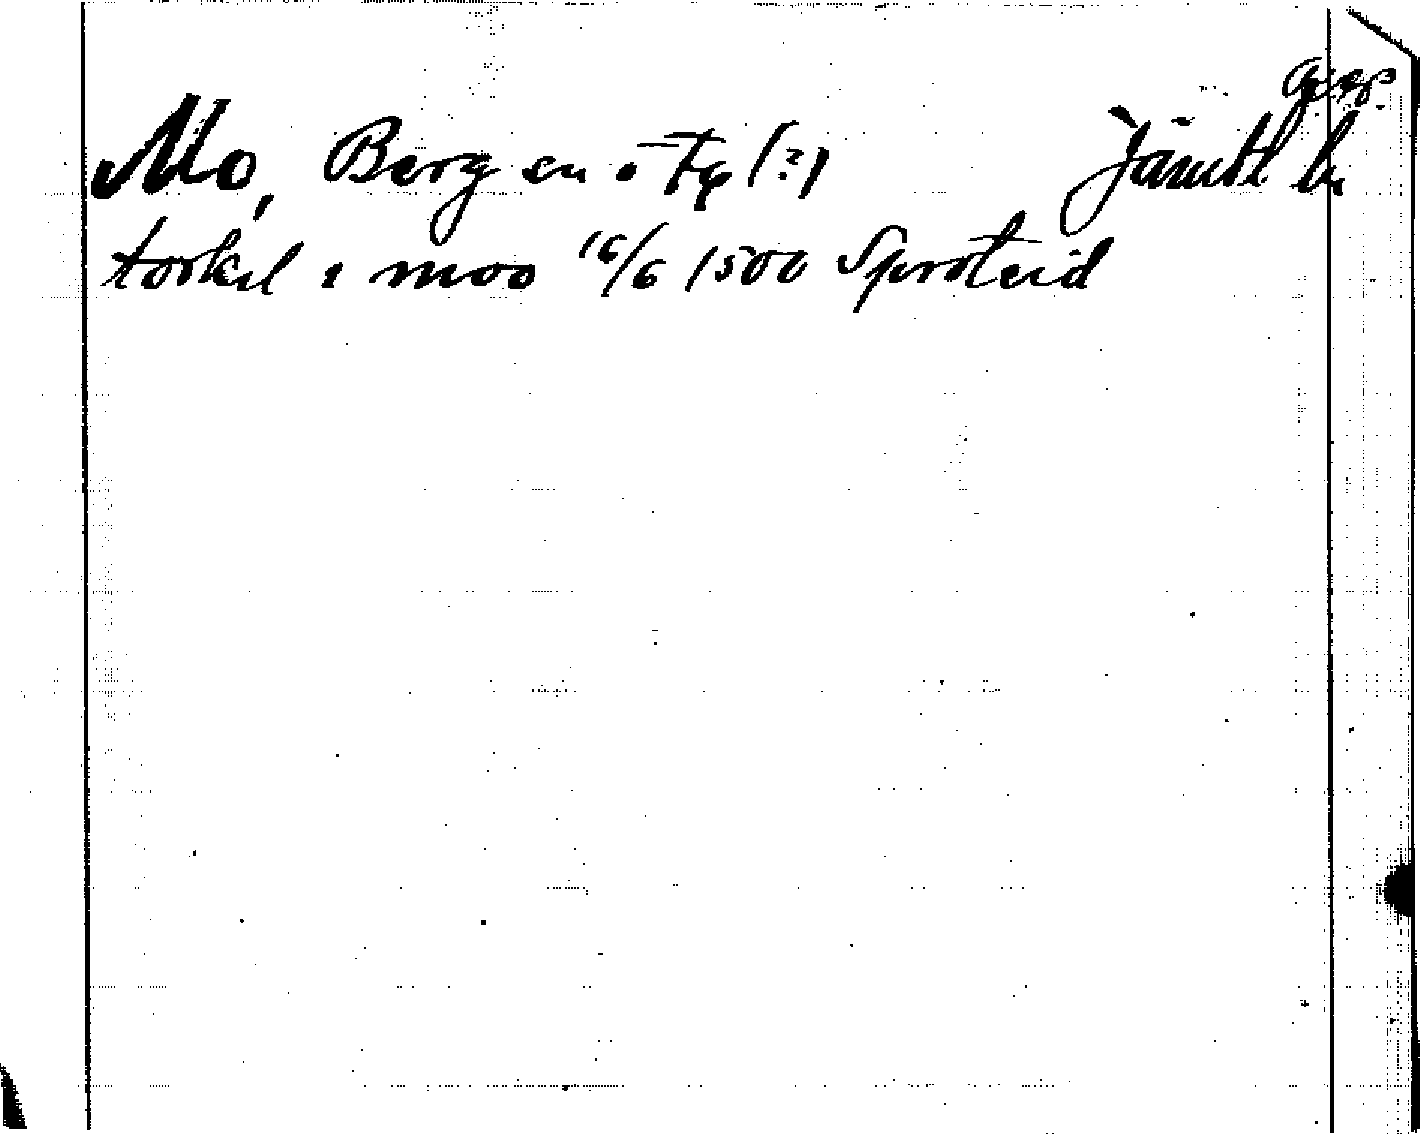 Mo, Berg sn o Tg (?) Jämtl ln
torkil i moo 16/6 1500 Sproteid